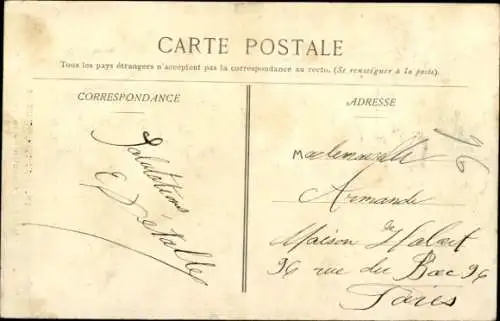 CARTE POSTALE
Tous les pays étrangers n'acceptent pas la correspondance au recto. (Se renseigner à la poste).
CORRESPONDANCE
ADRESSE
Salutations
Mademoiselle
Armande
Maison
96 rue du Bac 96
Paris